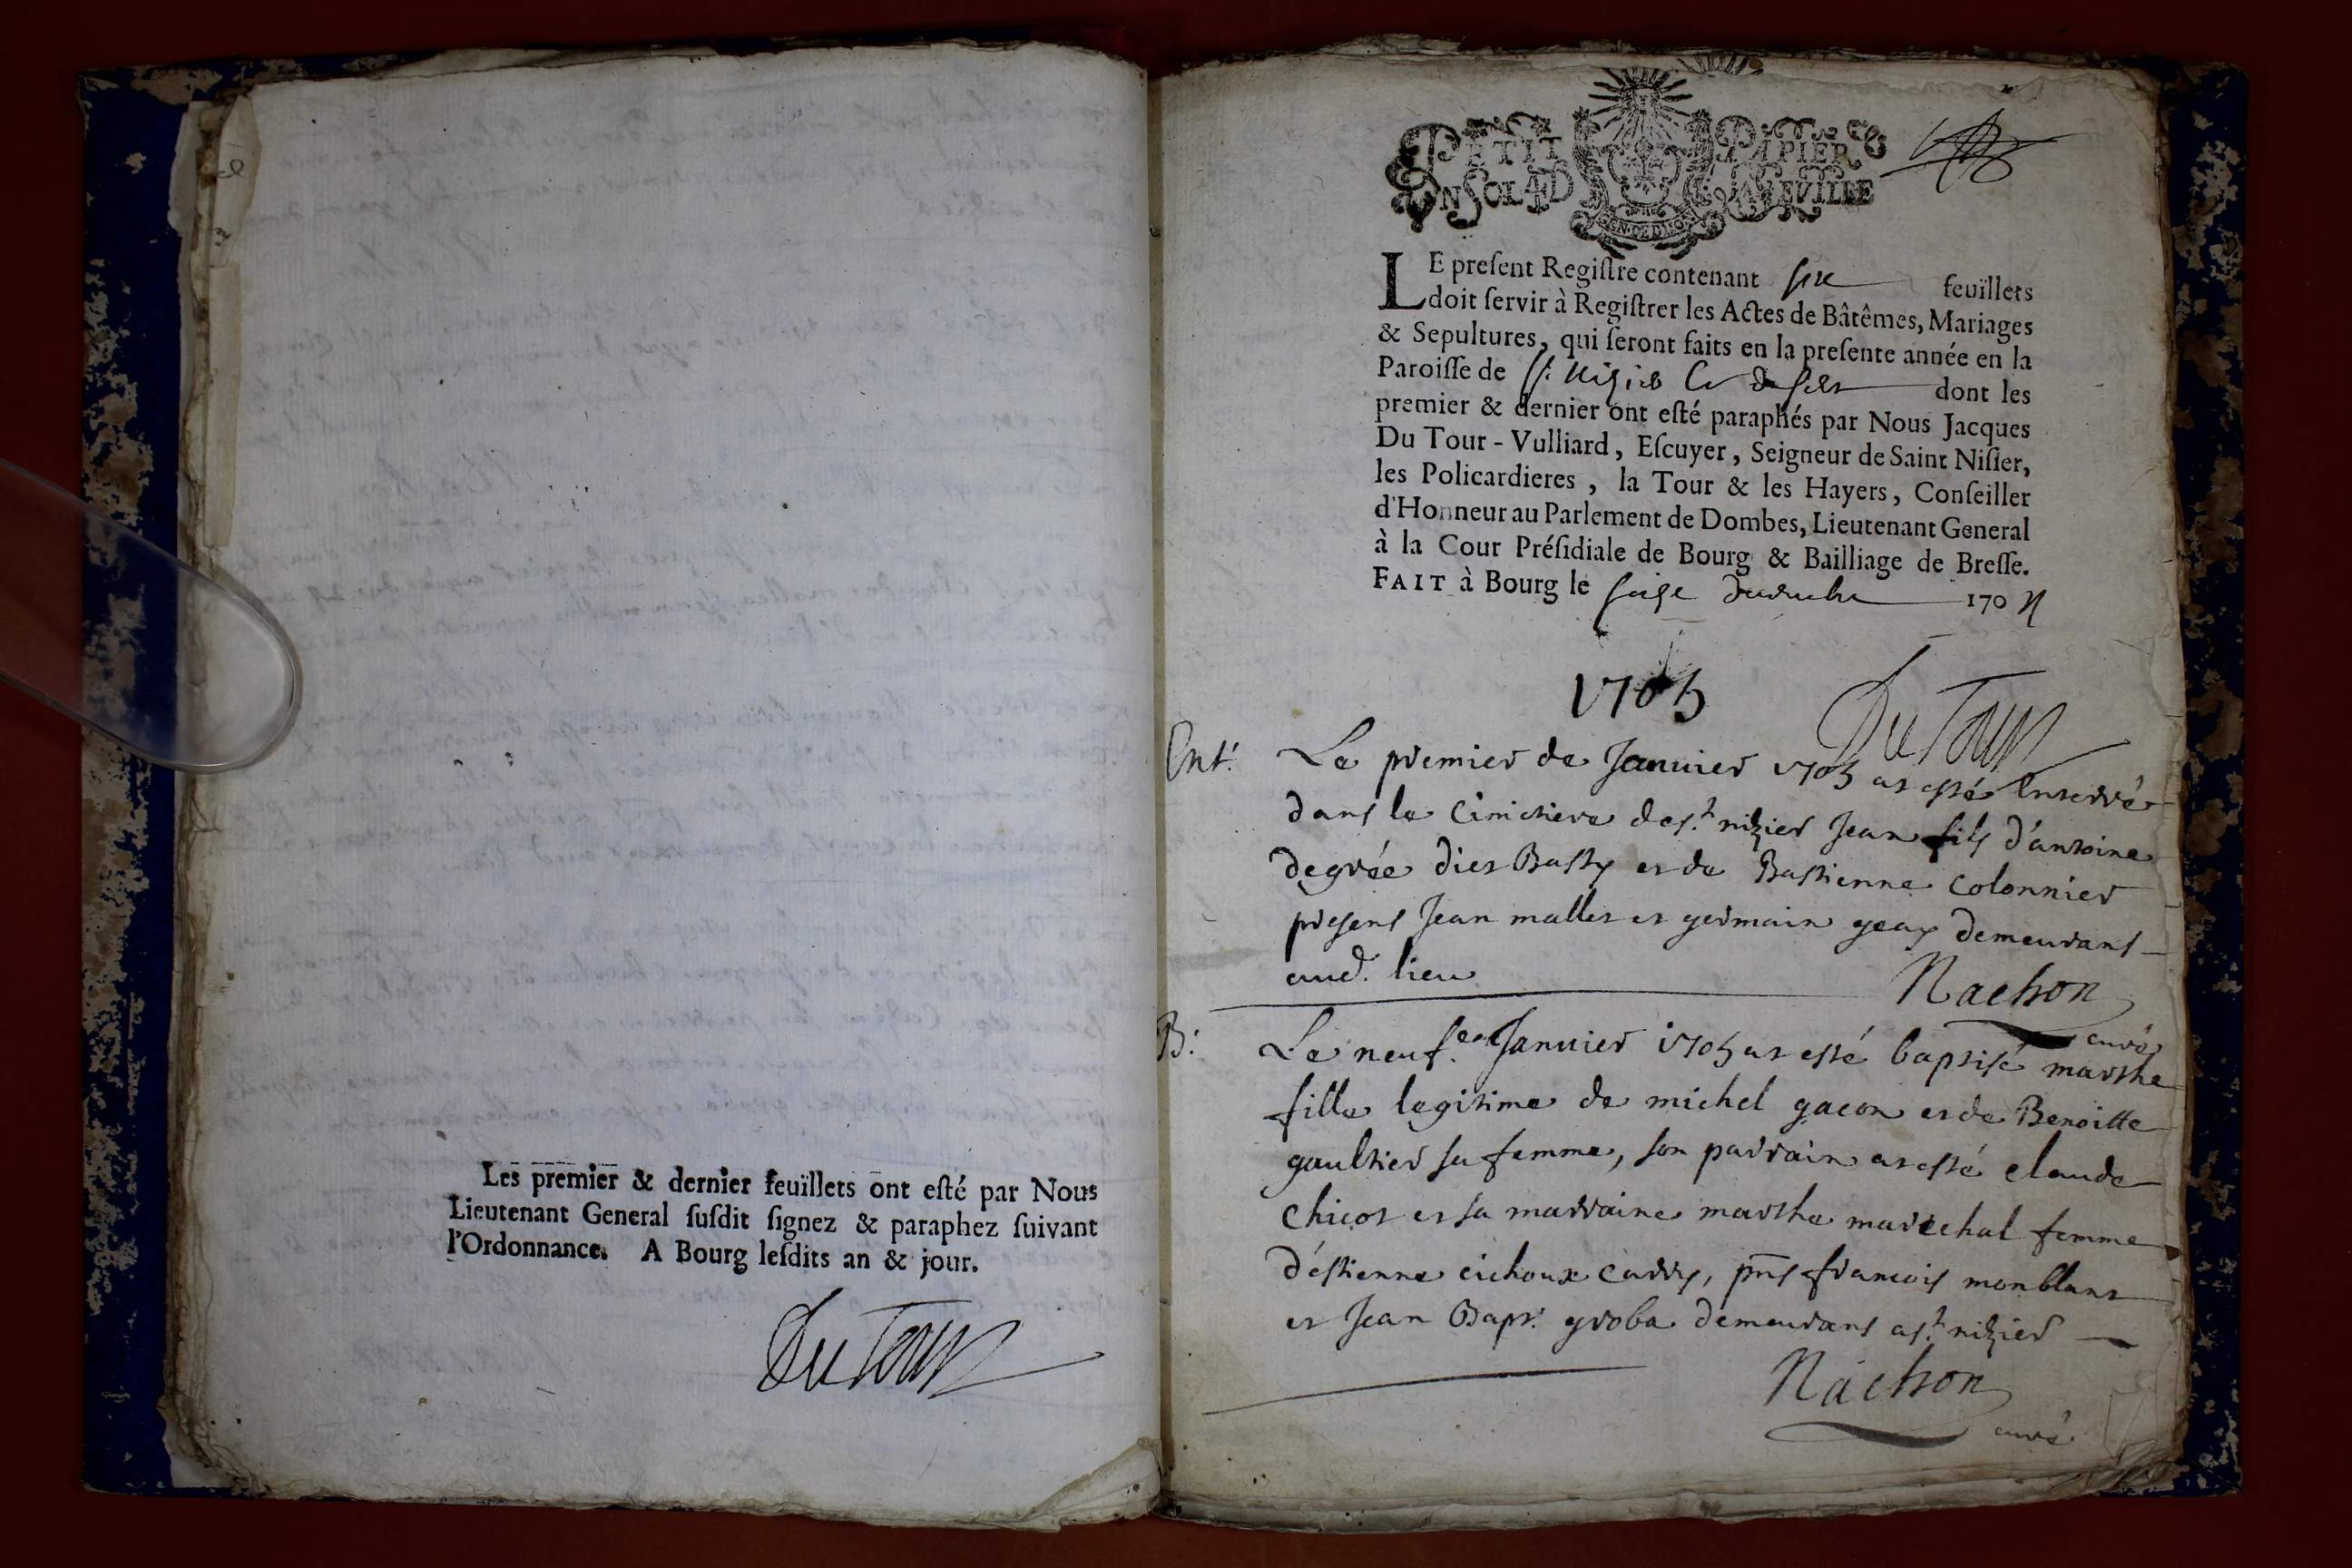 Les premier & dernier feuillets ont esté par Nous
Lieutenant General susdit signez & paraphez suivant
l'Ordonnance. A Bourg lesdits an & jour.
Du Tour
PETIT PAPIER
LE present Registre contenant six feuïllets
doit servir à Registrer les Actes de Bâtêmes, Mariages
& Sepultures, qui seront faits en la presente année en la
Paroisse de St Nizier le desert dont les
premier & dernier ont esté paraphés par Nous Jacques
Du Tour-Vulliard, Escuyer, Seigneur de Saint Nisier,
les Policardieres, la Tour & les Hayers, Conseiller
d'Honneur au Parlement de Dombes, Lieutenant General
à la Cour Présidiale de Bourg & Bailliage de Bresse.
FAIT à Bourg le 170
1705
Du Tour
Ent.
Le premier de Januier 1705 at esté Enterré
dans le Cimetiere de st nizier Jean fils d'antoine
degrée diet Basty et de Bastienne Colonnier
presens Jean mallet et germain geay demeurans
aud. lieu
Nachon
curé
B:
Le neuf.e Januier 1705 at esté baptisé marthe
fille legitime de michel gacon et de Benoitte
gaultier sa femme, son parrain at esté claude
chicot et sa marraine marthe marechal femme
d'estienne cichoux carry, pñs francois monblant
et Jean Bapt. groba demeurans a st nizier
Nachon
curé